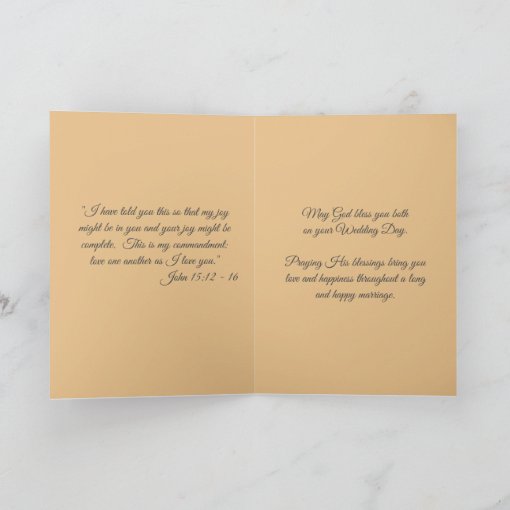 "I have told you this so that my joy
might be in you and your joy might be
complete. This is my commandment:
love one another as I love you."
John 15:12 - 16
May God bless you both
on your Wedding Day.
Praying His blessings bring you
love and happiness throughout a long
and happy marriage.